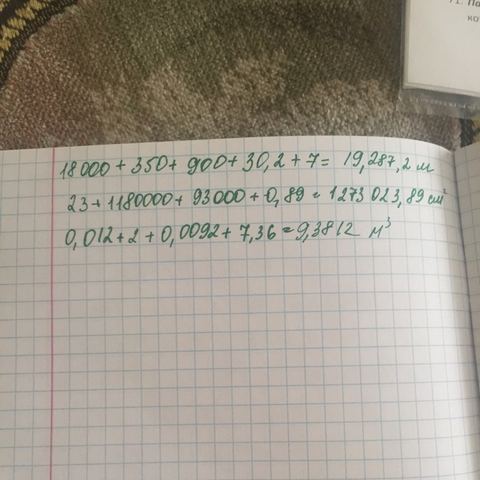 71. По
ко
18000 + 350 + 900 + 30,2 + 7 = 19,287,2 м
23 + 1180000 + 93000 + 0,89 = 1273023,89 см²
0,012 + 2 + 0,0092 + 7,36 = 9,3812 м³